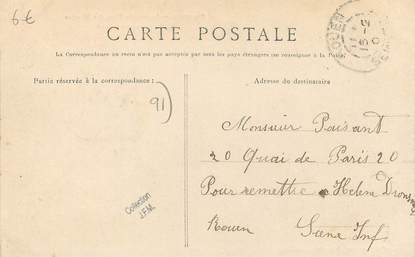 6€
CARTE POSTALE
La Correspondance au recto n'est pas acceptée par tous les pays étrangers (se renseigner à la Poste)
Partie réservée à la correspondance :
Adresse du destinataire
91)
ROUEN
Monsieur Paisant
20 Quai de Paris 20
Pour remettre Helene
Rouen Seine Inf
Collection
J.F.M.